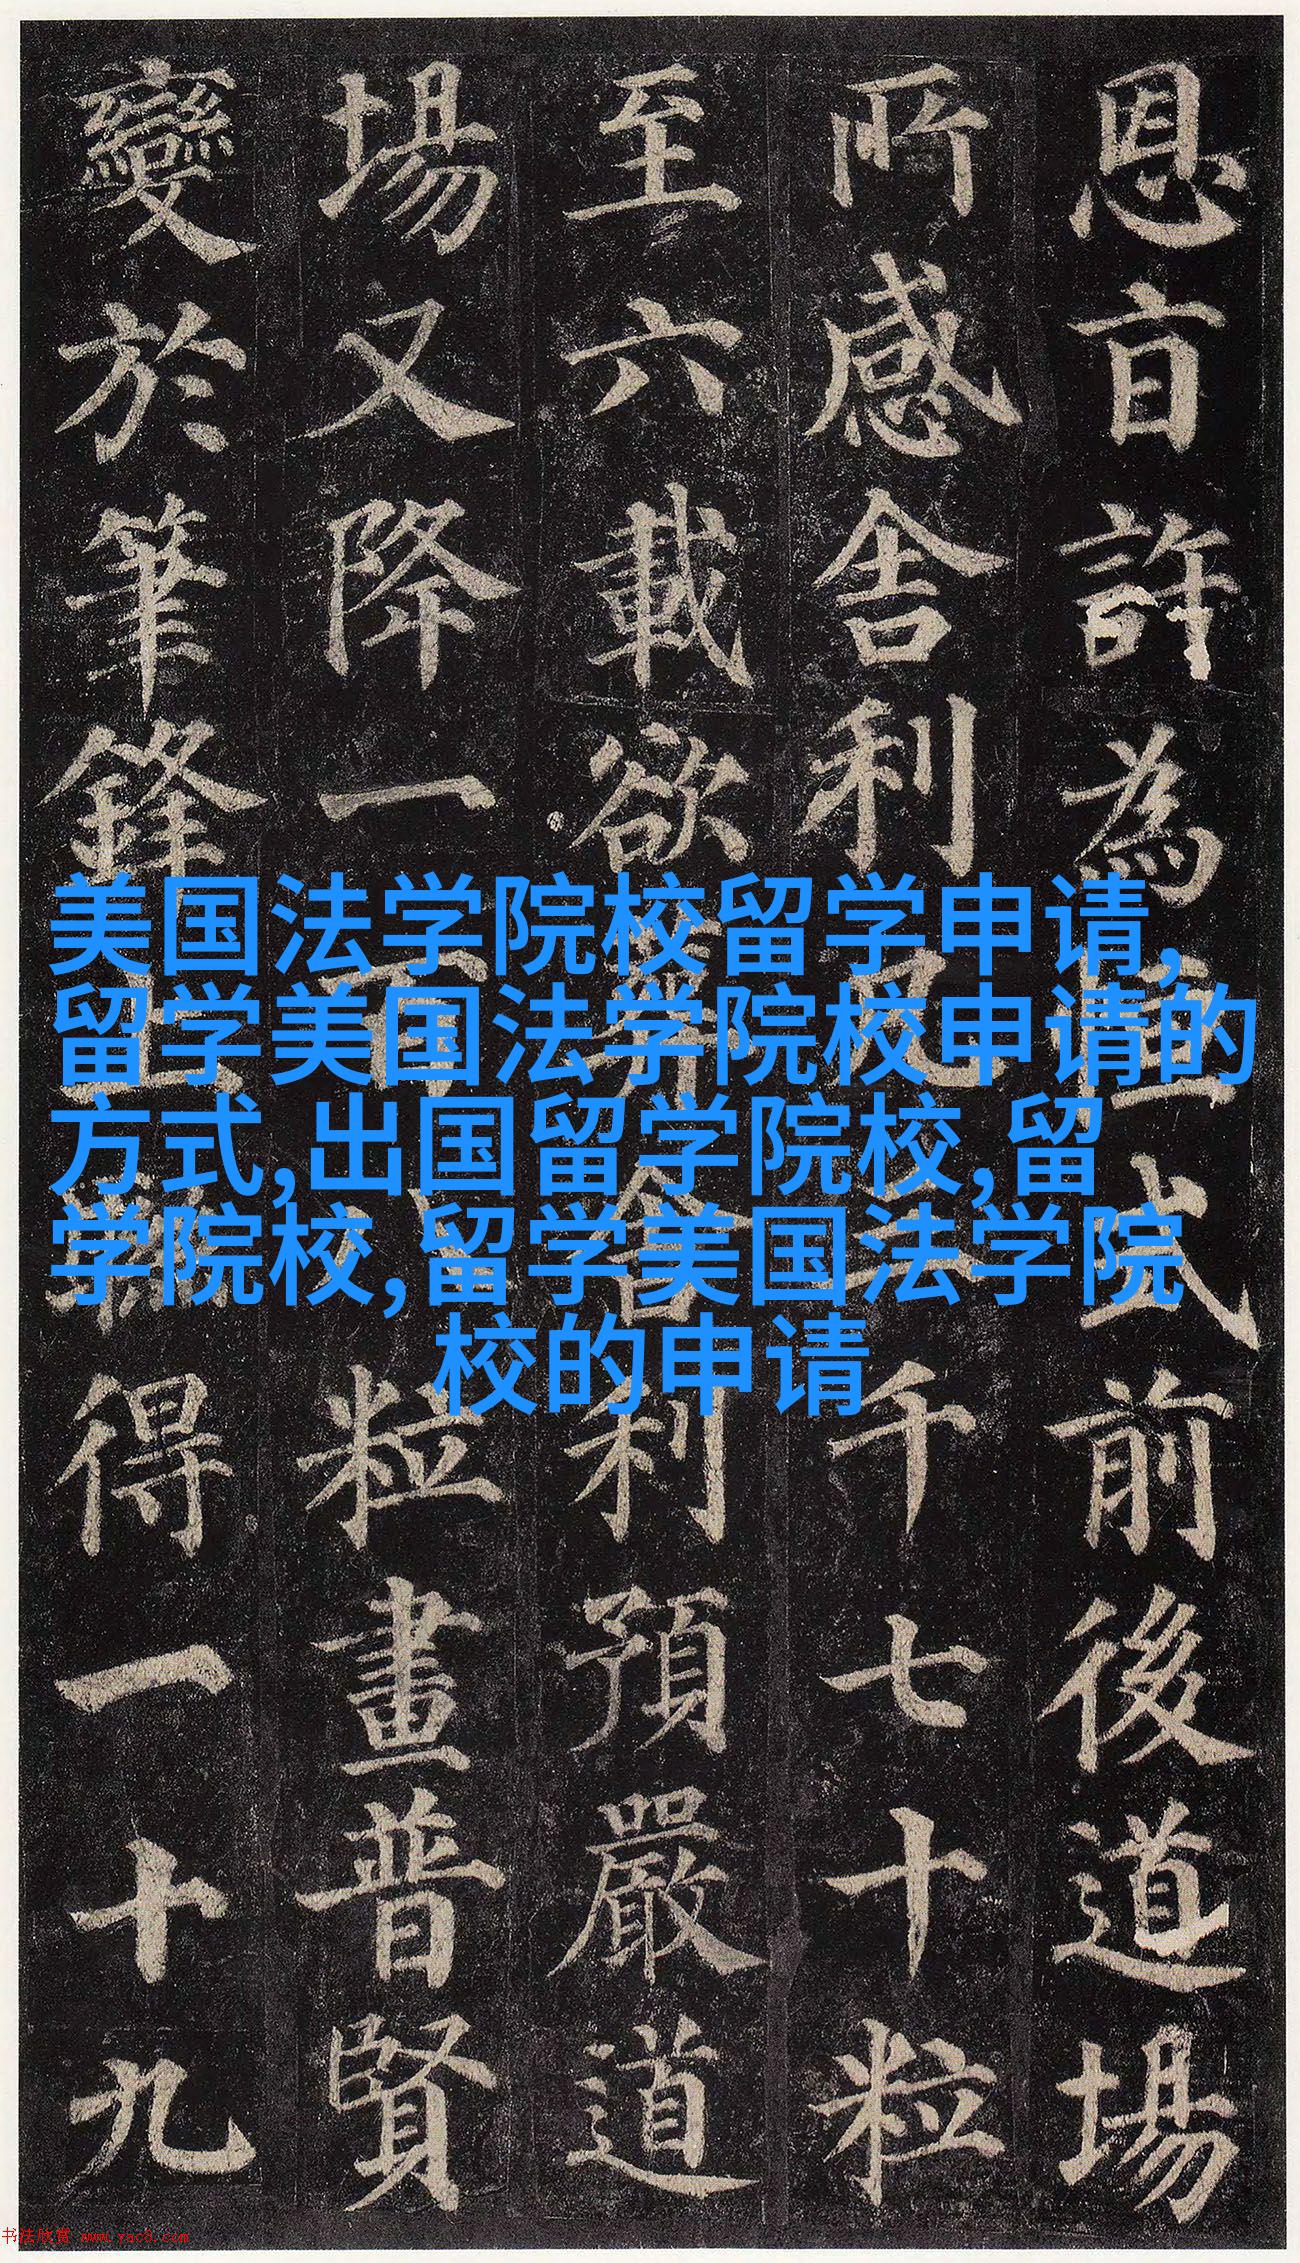 恩旨許為式前後道場
所感舍利千七十粒
至六載欲舍利預嚴道
場又降一粒畫普賢
變於筆鋒得一十九
美国法学院校留学申请,
留学美国法学院校申请的
方式,出国留学院校,留
学院校,留学美国法学院
校的申请
书法欣赏 www.yac8.com